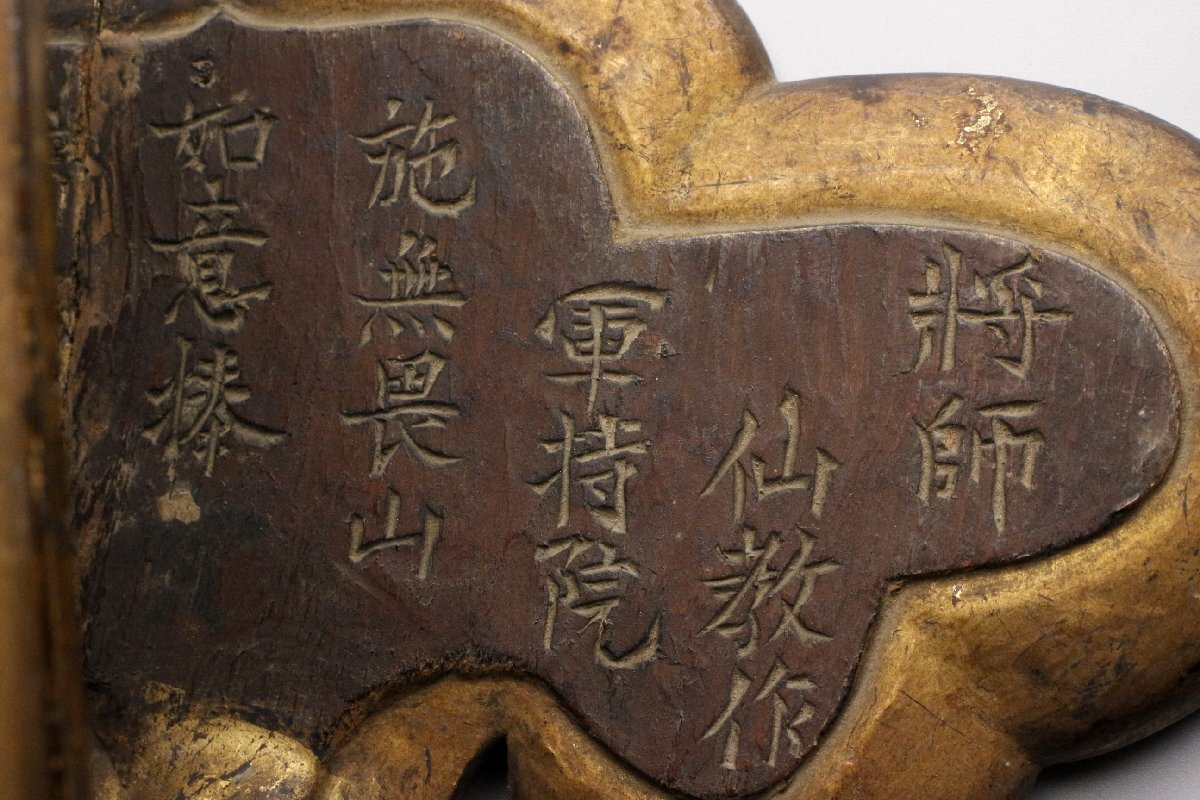 將師
仙教作
軍持院
施無畏山
如意棒